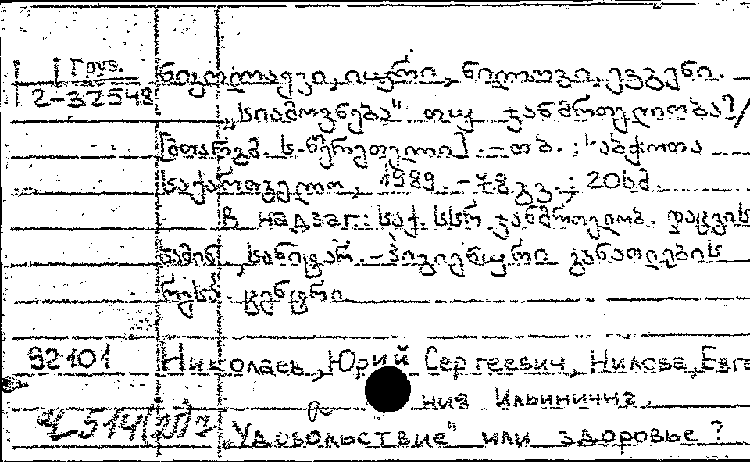 Груз.
2-32548
ნიკოლაევი, იური, ნილოვა, ევგენი.
„სიამოვნება" თუ ჯანმრთელობა?/
[თარგმ. ს. წერეთელი]. - თბ. : საბჭოთა
საქართველო, 1989. - 78 გვ.; 20სმ
В надзаг: საქ. სსრ ჯანმრთელობ. დაცვის
სამინ., სანიტარ.-ჰიგიენური განათლების
რესპ. ცენტრი
92101 Николаев, Юрий Сергеевич, Нилова, Евге
ния Ильинична.
„Удовольствие" или здоровье?